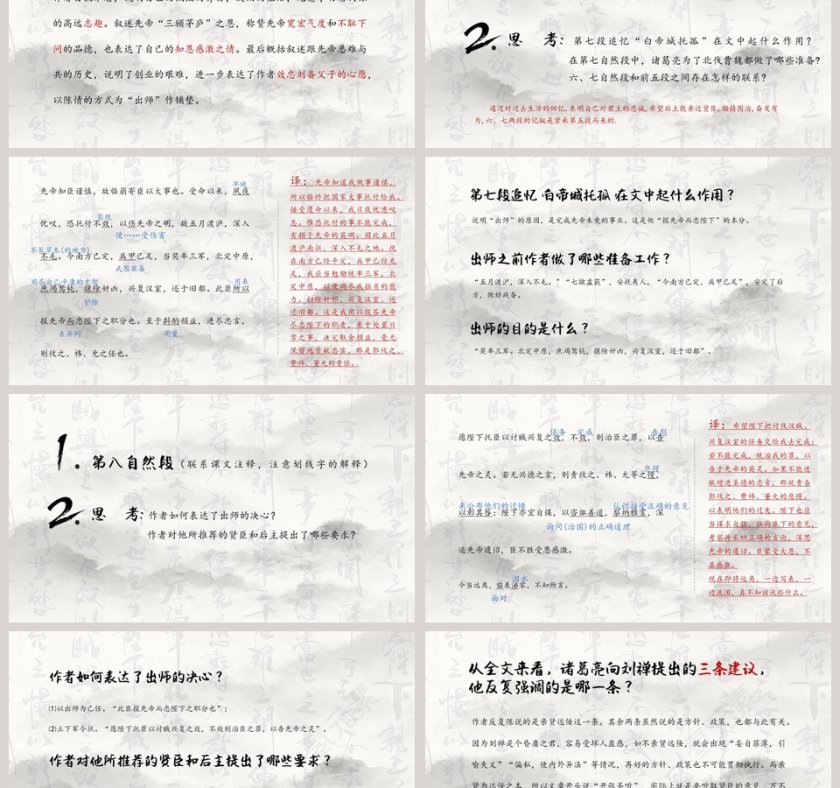 的高远志趣。叙述先帝“三顾茅庐”之恩，称赞先帝宽宏气度和不耻下
问的品德，也表达了自己的知恩感激之情。最后概括叙述跟先帝患难与
共的历史，说明了创业的艰难，进一步表达了作者效忠刘备父子的心愿，
以陈情的方式为“出师”作铺垫。
2. 思 考：第七段追忆“白帝城托孤”在文中起什么作用？
在第七自然段中，诸葛亮为了北伐曹魏都做了哪些准备？
六、七自然段和前五段之间存在怎样的联系？
通过对过去生活的回忆，表明自己对君主的忠诚，希望后主能亲近贤臣，励精图治，奋发有
为，六、七两段的记叙是紧承第五段而来的。
早晚
先帝知臣谨慎，故临崩寄臣以大事也。受命以来，夙夜
忧叹，恐托付不效，以伤先帝之明，故五月渡泸，深入
使……受伤害
不长草木（的地方）
不毛。今南方已定，兵甲已足，当奖率三军，北定中原，
武器装备
用尽自己平庸的才智
用来
庶竭驽钝，攘除奸凶，兴复汉室，还于旧都。此臣所以
铲除
报先帝而忠陛下之职分也。至于斟酌损益，进尽忠言，
表并列
测量
则攸之、祎、允之任也。
译：先帝知道我做事谨慎，
所以临终把国家大事托付给我。
接受遗命以来，我日夜忧愁叹
息，惟恐托付的事不能完成，
有损于先帝的英明。因此五月
渡泸南征，深入不毛之地。现
在南方已经平定，兵甲已经充
足，我应当勉励统率三军，北
定中原，以使竭尽我拙劣的能
力，扫除奸邪，兴复汉室，返
还旧都。这是我用以报答先帝
尽忠陛下的职责。至于处置日
常之事，决定取舍损益，毫无
保留地贡献忠言，那是郭攸之、
费祎、董允的责任。
第七段追忆 白帝城托孤 在文中起什么作用？
说明“出师”的原因，是完成先帝未竟的事业。这是他“报先帝而忠陛下”的本分。
出师之前作者做了哪些准备工作？
“五月渡泸，深入不毛。”“七擒孟获”，安抚夷人，“今南方已定，兵甲已足”，安定了后
方，做好战备。
出师的目的是什么？
“奖率三军，北定中原，庶竭驽钝，攘除奸凶，兴复汉室，还于旧都”。
1. 第八自然段（联系课文注释，注意划线字的解释）
2. 思 考：作者如何表达了出师的决心？
作者对他所推荐的贤臣和后主提出了哪些要求？
任务 完成 告慰
愿陛下托臣以讨贼兴复之效，不效，则治臣之罪，以告
怠慢
先帝之灵。若无兴德之言，则责攸之、祎、允等之慢，
来公布他们的过错
认识接受正确的意见
以彰其咎；陛下亦宜自谋，以咨诹善道，察纳雅言，深
询问（治国）的正确道理
追先帝遗诏，臣不胜受恩感激。
泪水
今当远离，临表涕零，不知所言。
面对
译：希望陛下把讨伐汉贼、
兴复汉室的任务交给我去完成；
若不能完成，就治我的罪，以
告于先帝的英灵。如果不能进
献增进圣德的忠言，那就责备
郭攸之、费祎、董允的怠慢，
以表明他们的过失。陛下也应
当谋求自强，征询臣下的意见，
考察并采纳正确的言论，深思
先帝的遗诏，臣蒙受大恩，不
甚感激。
现在即将远离，一边写表，一
边流泪，真不知该说些什么。
作者如何表达了出师的决心？
⑴以出师为己任。“此臣报先帝而忠陛下之职分也”；
⑵立下军令状。“愿陛下托臣以讨贼兴复之效，不效则治臣之罪，以告先帝之灵”。
作者对他所推荐的贤臣和后主提出了哪些要求？
从全文来看，诸葛亮向刘禅提出的三条建议，
他反复强调的是哪一条？
作者反复陈说的是亲贤远佞这一条。其余两条虽然说的是方针、政策，也都与此有关。
因为刘禅是个昏庸之君，容易受坏人蛊惑，如不亲贤远佞，就会出现“妄自菲薄，引
喻失义”“偏私，使内外异法”等情况，再好的方针、政策也不可能贯彻执行。而亲